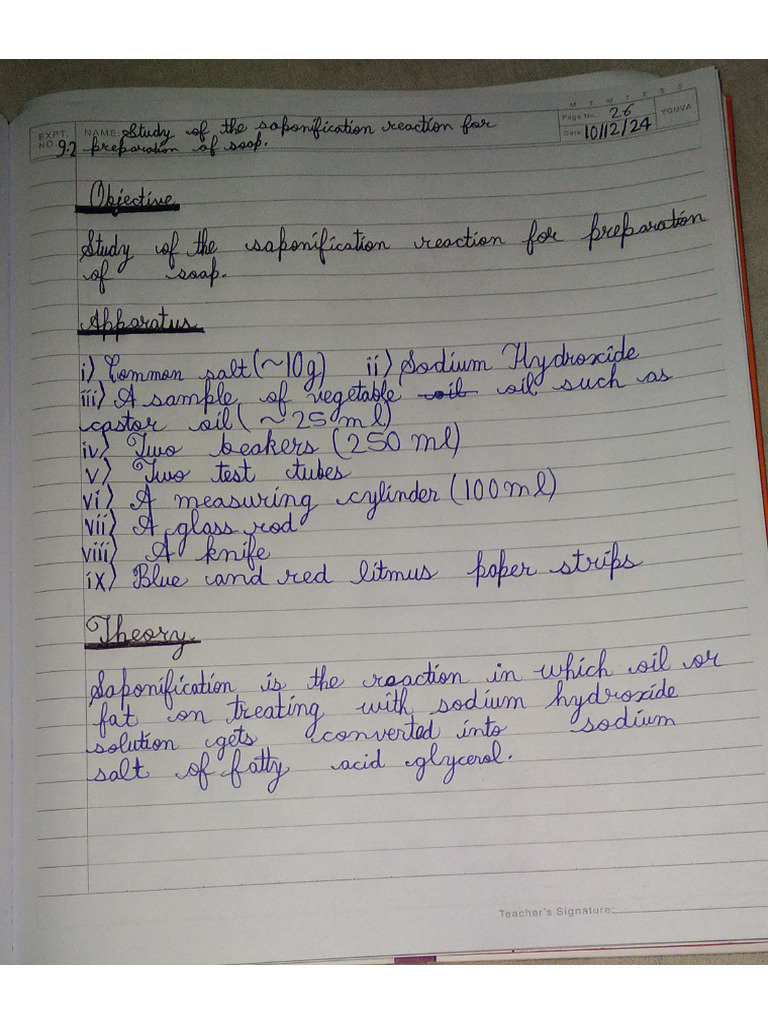 M T W T F S S
Page No.: 26
YOUVA
Date: 10/12/24
EXPT. NO. 9.2 NAME: Study of the saponification reaction for
preparation of soap.
Objective
Study of the saponification reaction for preparation
of soap.
Apparatus
i) Common salt (~10g) ii) Sodium Hydroxide
iii) A sample of vegetable oil oil such as
castor oil (~25ml)
iv) Two beakers (250 ml)
v) Two test tubes
vi) A measuring cylinder (100ml)
vii) A glass rod
viii) A knife
ix) Blue and red litmus paper strips
Theory
Saponification is the reaction in which oil or
fat on treating with sodium hydroxide
solution gets converted into sodium
salt of fatty acid glycerol.
Teacher's Signature: